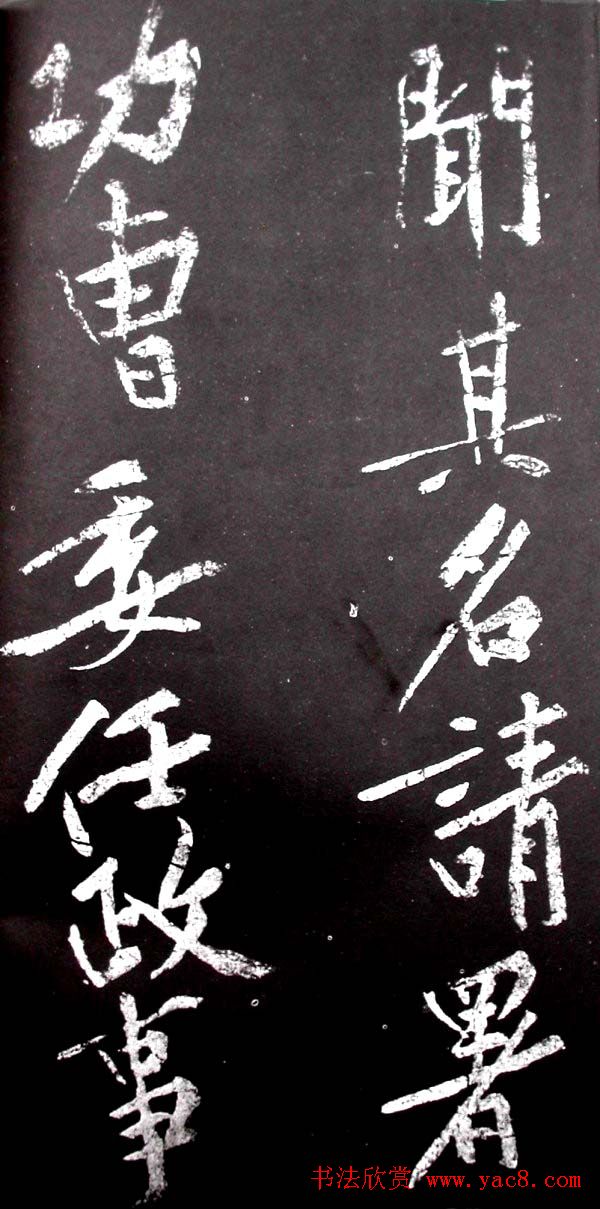 聞其名請署
功曹委任政事
书法欣赏 www.yac8.com